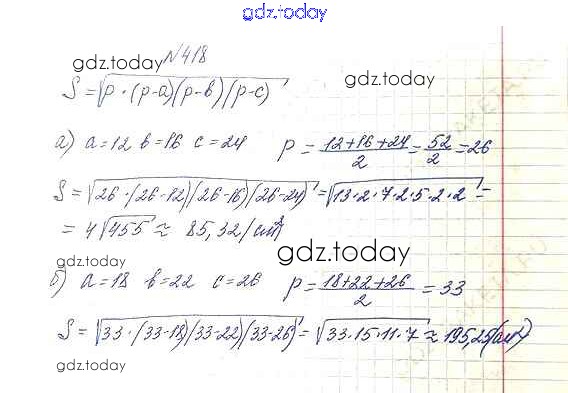 gdz.today
gdz.today
№418
gdz.today
S = √p · (p-a)(p-b)(p-c)
а) a=12 b=16 c=24 p = (12+16+24)/2 = 52/2 = 26
S = √26 · (26-12)(26-16)(26-24) = √13·2·7·2·5·2·2 =
= 4√455 ≈ 85,32 (см²)
gdz.today
gdz.today
б) a=18 b=22 c=26 p = (18+22+26)/2 = 33
S = √33 · (33-18)(33-22)(33-26) = √33·15·11·7 ≈ 195,25 (см²)
gdz.today